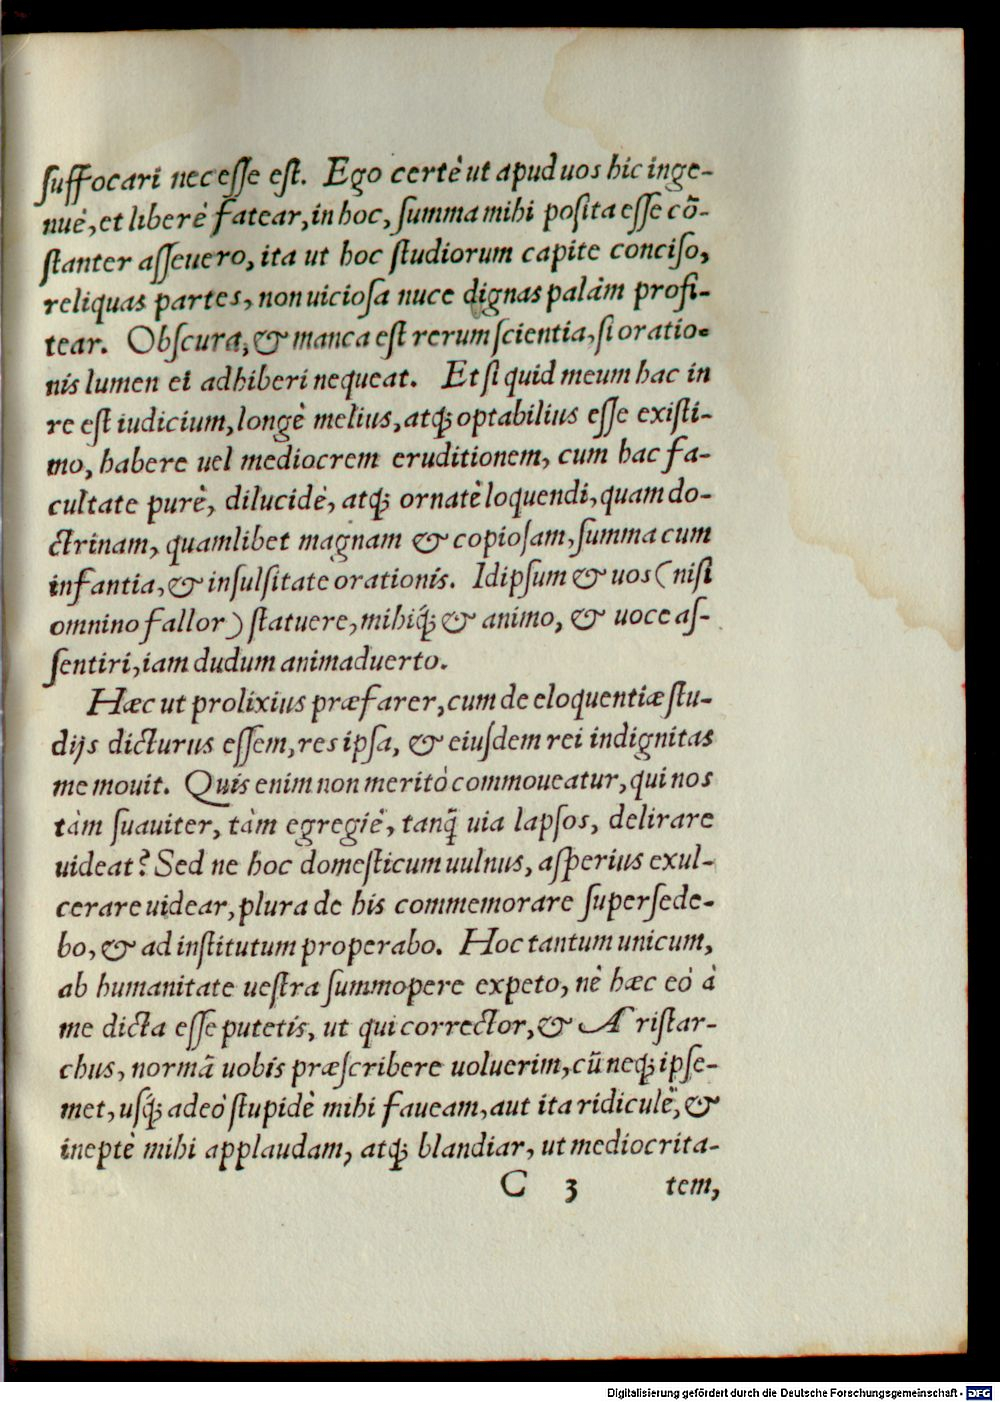 ſuffocari neceſſe eſt. Ego certè ut apud uos hic inge-
nuè, et liberè fatear, in hoc, ſumma mihi poſita eſſe cõ-
ſtanter aſſeuero, ita ut hoc ſtudiorum capite conciſo,
reliquas partes, non uicioſa nuce dignas palàm profi-
tear. Obſcura, & manca eſt rerum ſcientia, ſi oratio-
nis lumen ei adhiberi nequeat. Et ſi quid meum hac in
re eſt iudicium, longè melius, atq́ꝫ optabilius eſſe exiſti-
mo, habere uel mediocrem eruditionem, cum hac fa-
cultate purè, dilucidè, atq́ꝫ ornatè loquendi, quam do-
ctrinam, quamlibet magnam & copioſam, ſumma cum
infantia, & inſulſitate orationis. Idipſum & uos (niſi
omnino fallor) ſtatuere, mihiq́ꝫ & animo, & uoce aſ-
ſentiri, iam dudum animaduerto.
Hæc ut prolixius præfarer, cum de eloquentiæ ſtu-
dijs dicturus eſſem, res ipſa, & eiuſdem rei indignitas
me mouit. Quis enim non meritò commoueatur, qui nos
tàm ſuauiter, tàm egregiè, tanq̃ uia lapſos, delirare
uideat? Sed ne hoc domeſticum uulnus, aſperius exul-
cerare uidear, plura de his commemorare ſuperſede-
bo, & ad inſtitutum properabo. Hoc tantum unicum,
ab humanitate ueſtra ſummopere expeto, nè hæc eò à
me dicta eſſe putetis, ut qui corrector, & Ariſtar-
chus, normã uobis præſcribere uoluerim, cũ neq́ꝫ ipſe-
met, uſq́ꝫ adeò ſtupidè mihi faueam, aut ita ridiculè, &
ineptè mihi applaudam, atq́ꝫ blandiar, ut mediocrita-
C 3 tem,
Digitalisierung gefördert durch die Deutsche Forschungsgemeinschaft - DFG